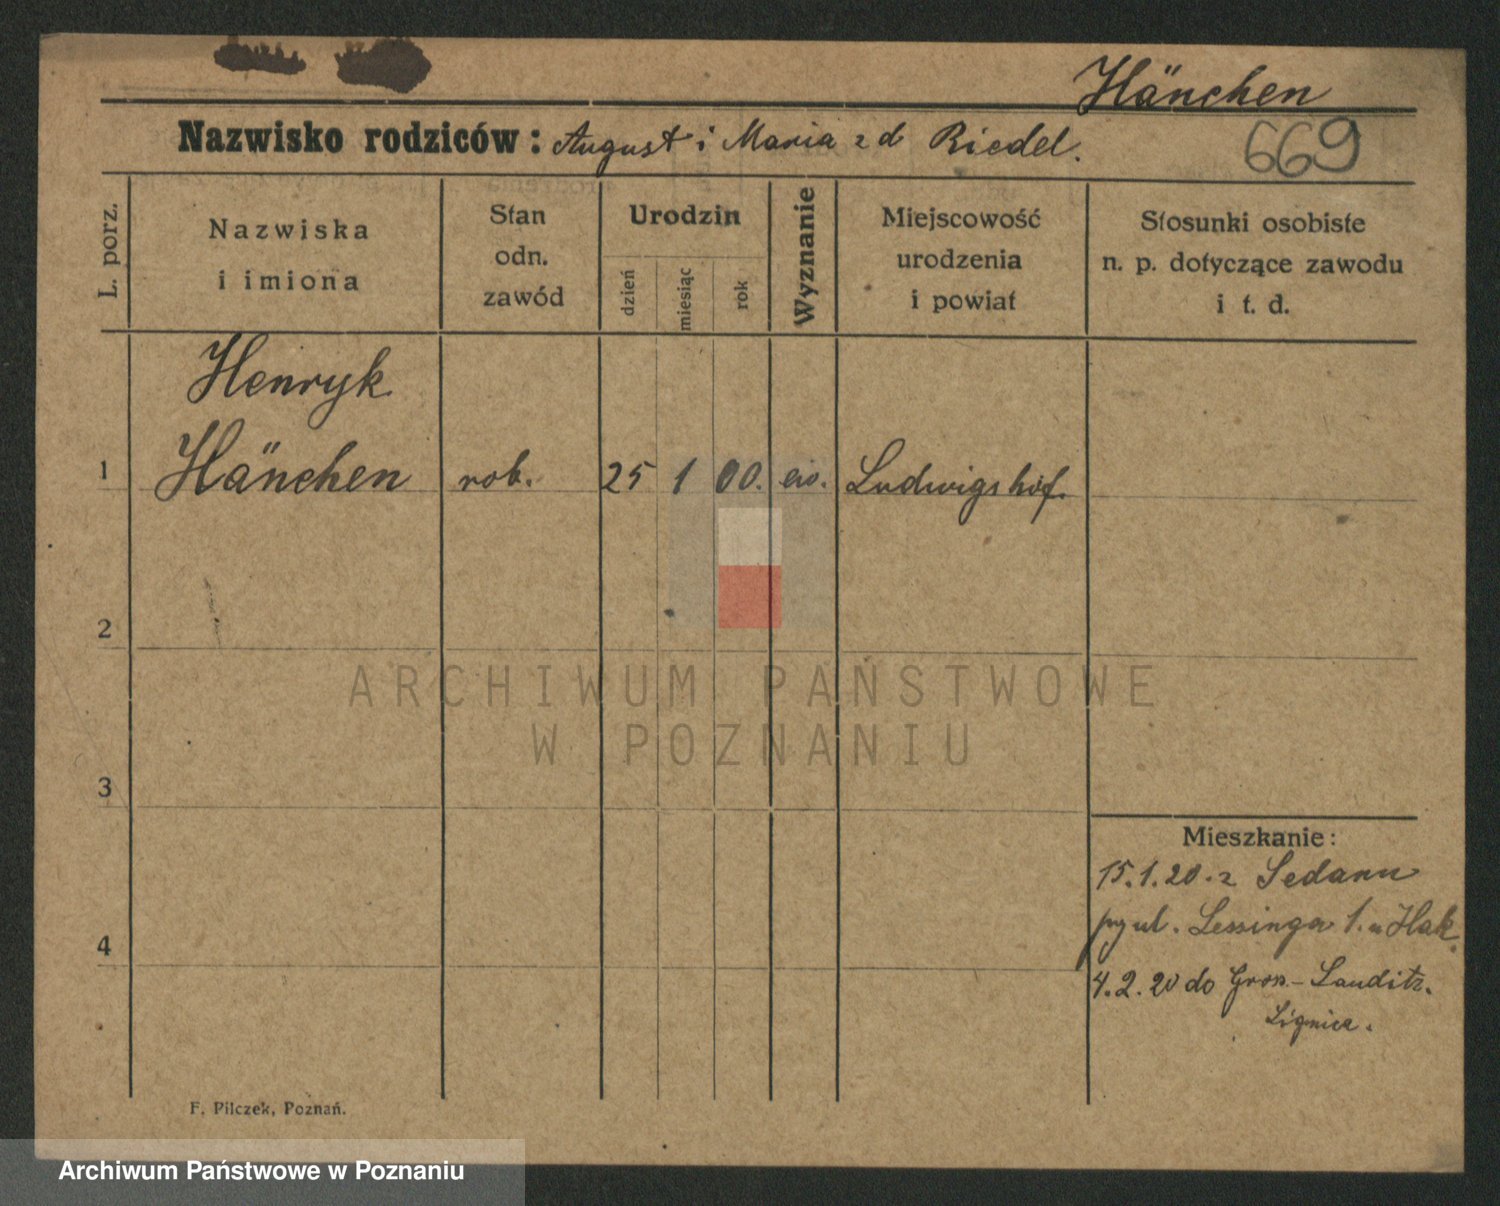 Hänchen
Nazwisko rodziców: August i Maria z d Riedel.
669
L. porz.
Nazwiska
i imiona
Stan
odn.
zawód
Urodzin
dzień
miesiąc
rok
Wyznanie
Miejscowość
urodzenia
i powiat
Stosunki osobiste
n. p. dotyczące zawodu
i t. d.
Henryk
1 Hänchen rob. 25 1 00. ew. Ludwigshof.
2
ARCHIWUM PAŃSTWOWE
W POZNANIU
3
Mieszkanie:
15.1.20. z Sedanu
ul. Lessinga 1. u Hak.
4
4.2.20 do Gross-Lauditz.
Lignica.
F. Pilczek, Poznań.
Archiwum Państwowe w Poznaniu